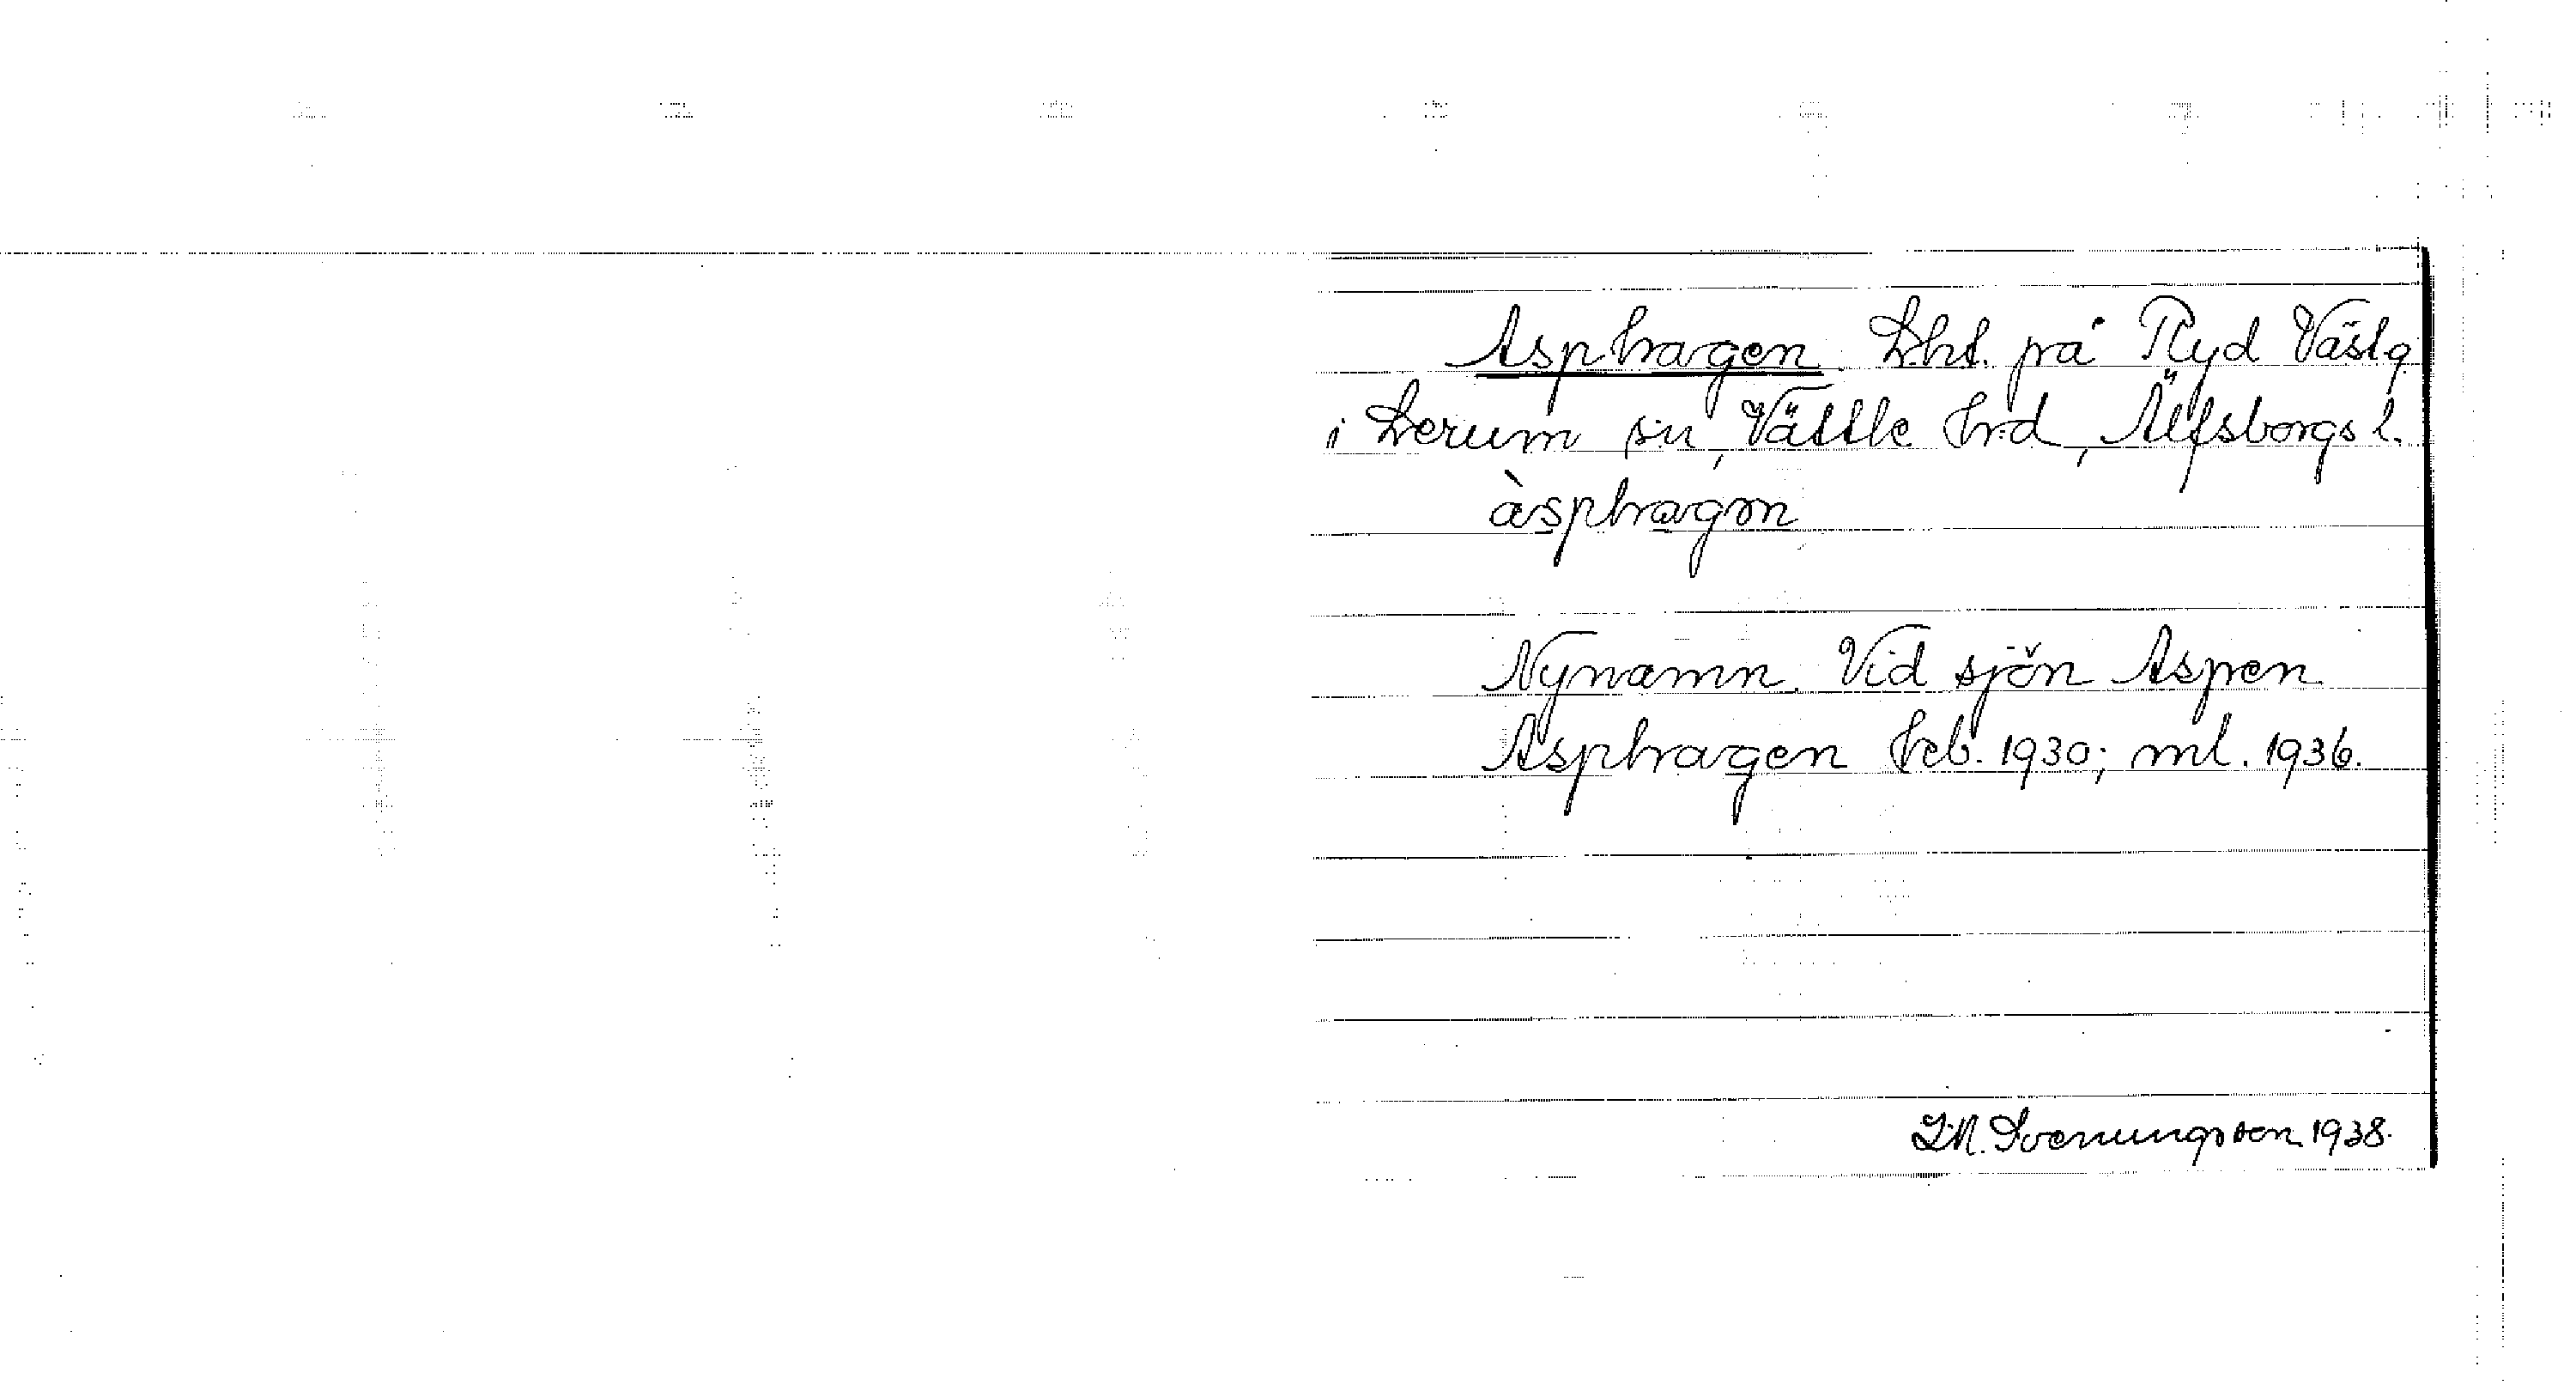 Asphagen Lht. på Ryd Västg
i Lerum sn, Vättle hrd, Älfsborgs l.
àsphagən
Nynamn. Vid sjön Aspen
Asphagen hcb. 1930; ml. 1936.
Svenungsson 1938.